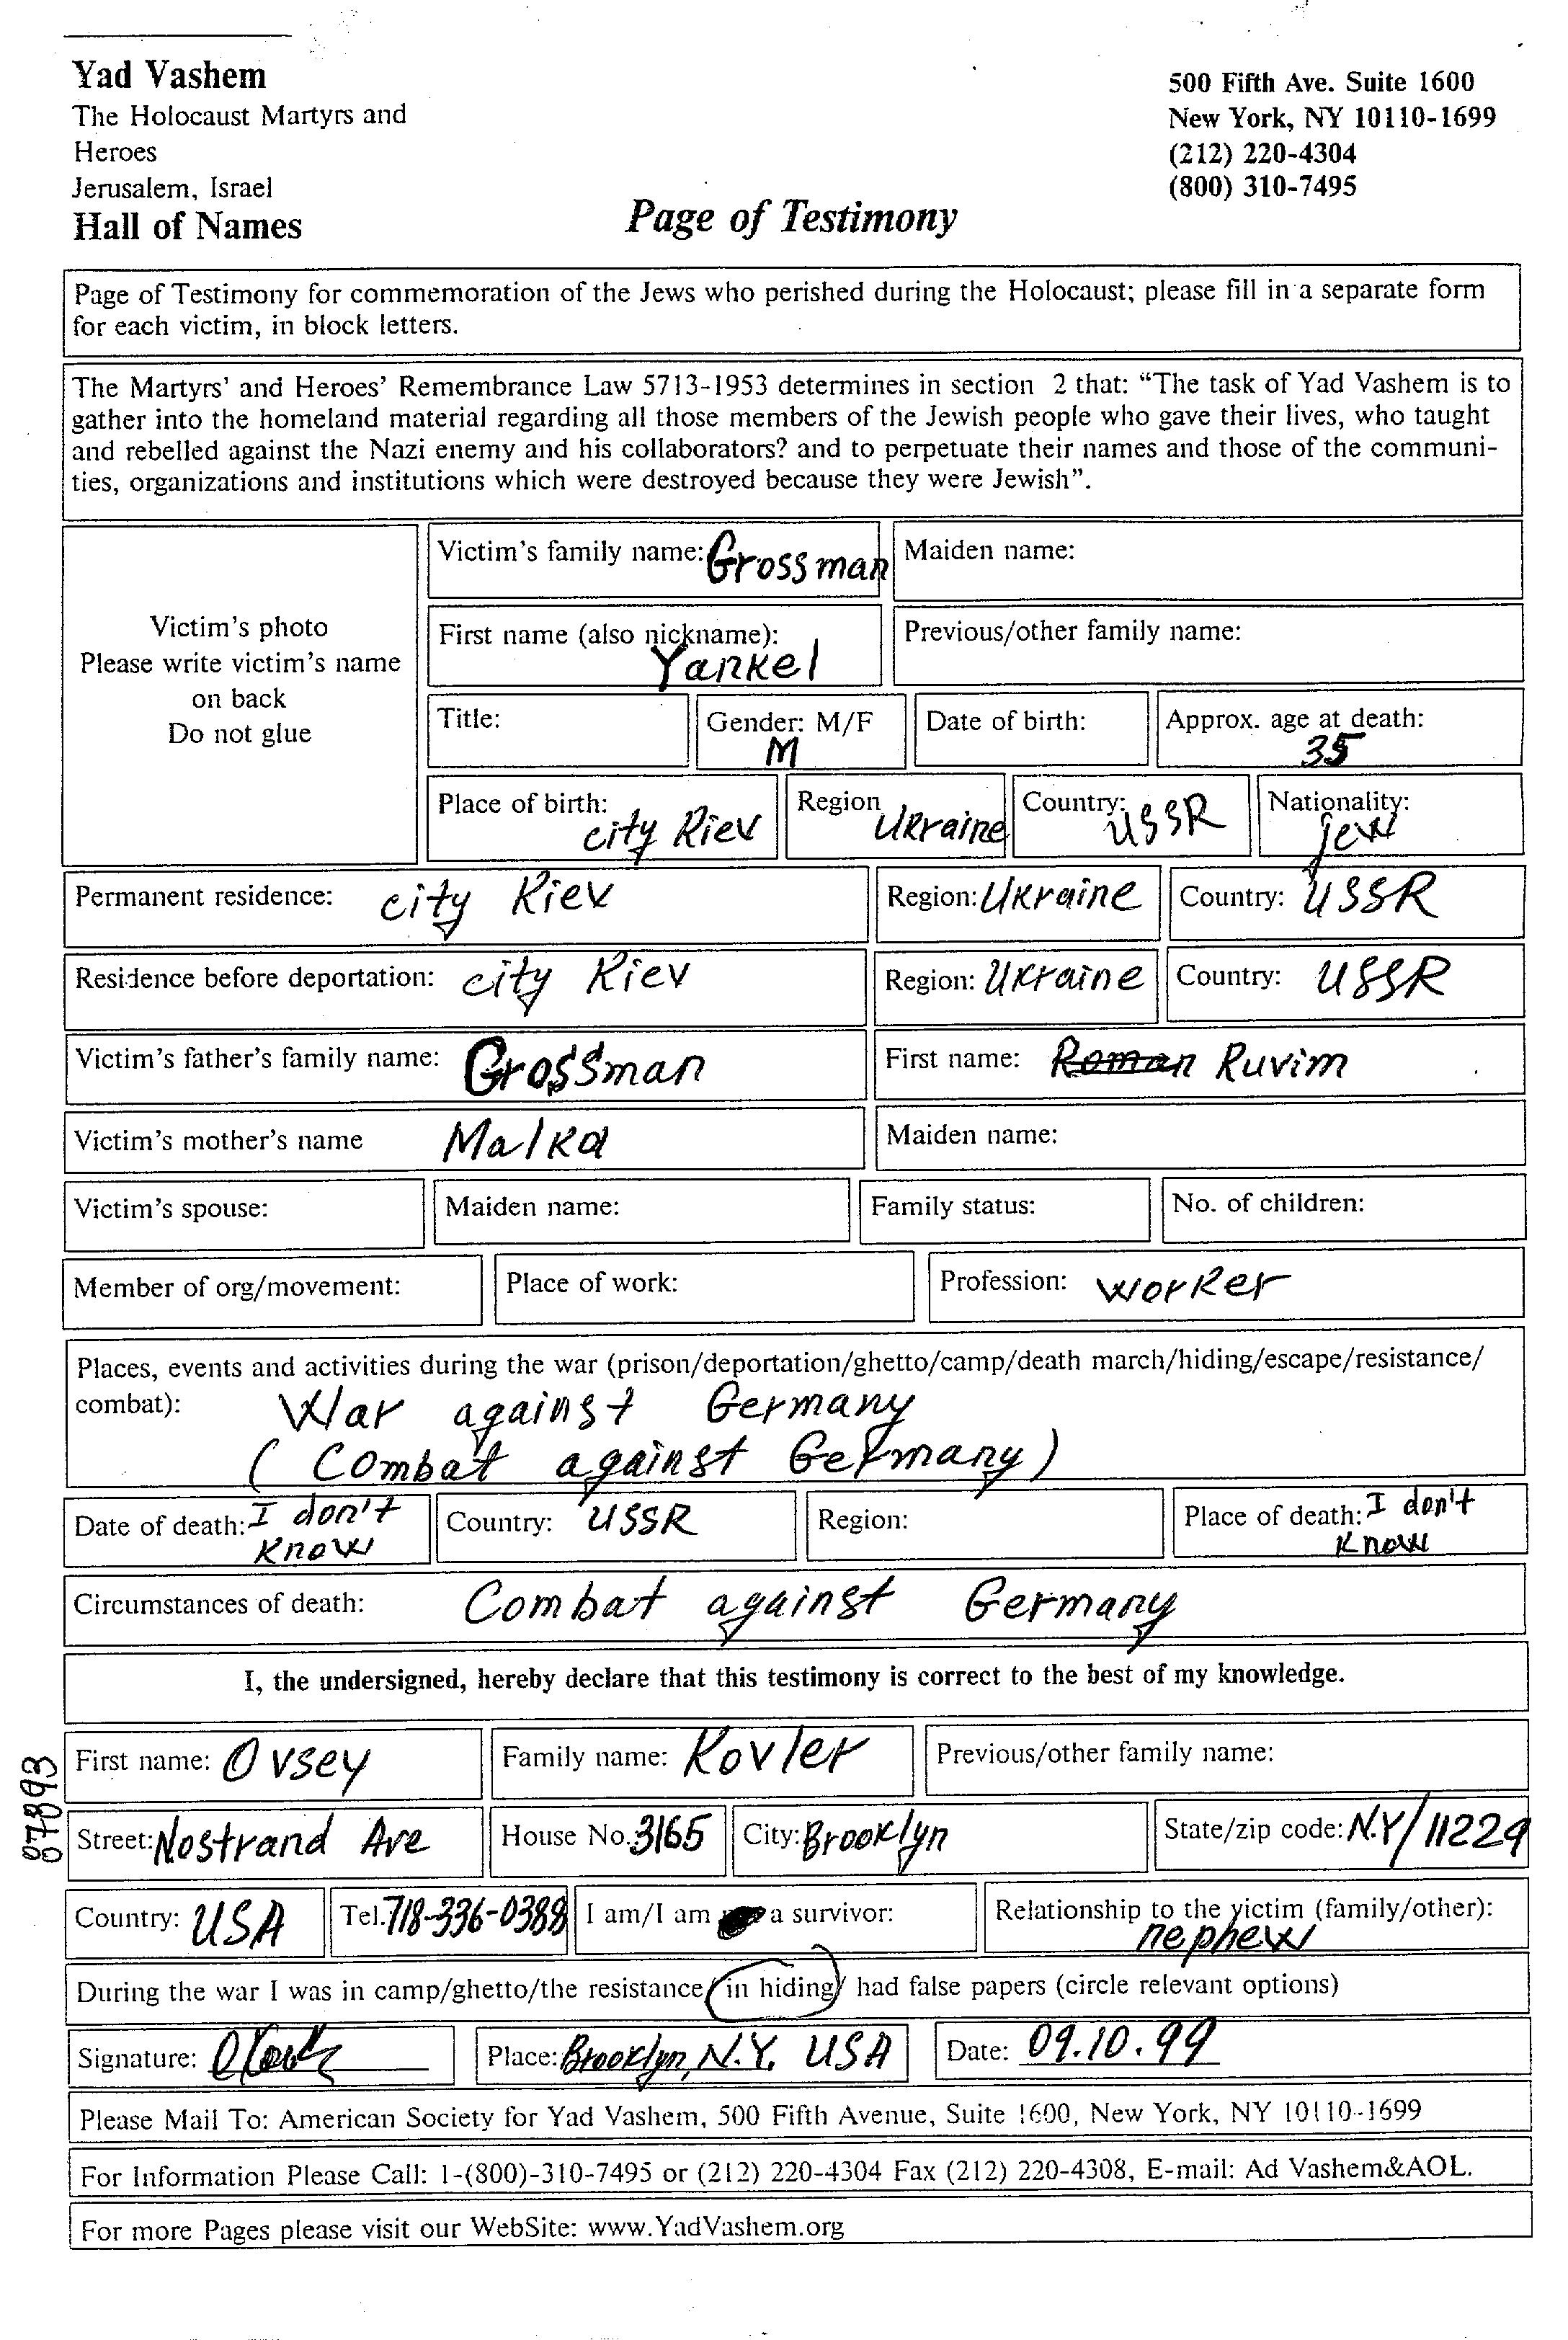 Yad Vashem
The Holocaust Martyrs and
Heroes
Jerusalem, Israel
Hall of Names
500 Fifth Ave. Suite 1600
New York, NY 10110-1699
(212) 220-4304
(800) 310-7495
Page of Testimony
Page of Testimony for commemoration of the Jews who perished during the Holocaust; please fill in a separate form
for each victim, in block letters.
The Martyrs' and Heroes' Remembrance Law 5713-1953 determines in section 2 that: “The task of Yad Vashem is to
gather into the homeland material regarding all those members of the Jewish people who gave their lives, who taught
and rebelled against the Nazi enemy and his collaborators? and to perpetuate their names and those of the communi-
ties, organizations and institutions which were destroyed because they were Jewish”.
Victim's photo
Please write victim's name
on back
Do not glue
Victim's family name: Grossman
Maiden name:
First name (also nickname):
Yankel
Previous/other family name:
Title:
Gender: M/F
M
Date of birth:
Approx. age at death:
35
Place of birth:
city Kiev
Region
Ukraine
Country:
USSR
Nationality:
jew
Permanent residence: city Kiev
Region: Ukraine
Country: USSR
Residence before deportation: city Kiev
Region: Ukraine
Country: USSR
Victim's father's family name: Grossman
First name: Roman Ruvim
Victim's mother's name Malka
Maiden name:
Victim's spouse:
Maiden name:
Family status:
No. of children:
Member of org/movement:
Place of work:
Profession: worker
Places, events and activities during the war (prison/deportation/ghetto/camp/death march/hiding/escape/resistance/
combat): War against Germany
( Combat against Germany)
Date of death: I don't
know
Country: USSR
Region:
Place of death: I don't
know
Circumstances of death: Combat against Germany
I, the undersigned, hereby declare that this testimony is correct to the best of my knowledge.
07893
First name: Ovsey
Family name: Kovler
Previous/other family name:
Street: Nostrand Ave
House No. 3165
City: Brooklyn
State/zip code: N.Y/11229
Country: USA
Tel. 718-336-0388
I am/I am a survivor:
Relationship to the victim (family/other):
nephew
During the war I was in camp/ghetto/the resistance/in hiding/ had false papers (circle relevant options)
Signature:
Place: Brooklyn, N.Y. USA
Date: 09.10.99
Please Mail To: American Society for Yad Vashem, 500 Fifth Avenue, Suite 1600, New York, NY 10110-1699
For Information Please Call: 1-(800)-310-7495 or (212) 220-4304 Fax (212) 220-4308, E-mail: Ad Vashem&AOL.
For more Pages please visit our WebSite: www.YadVashem.org